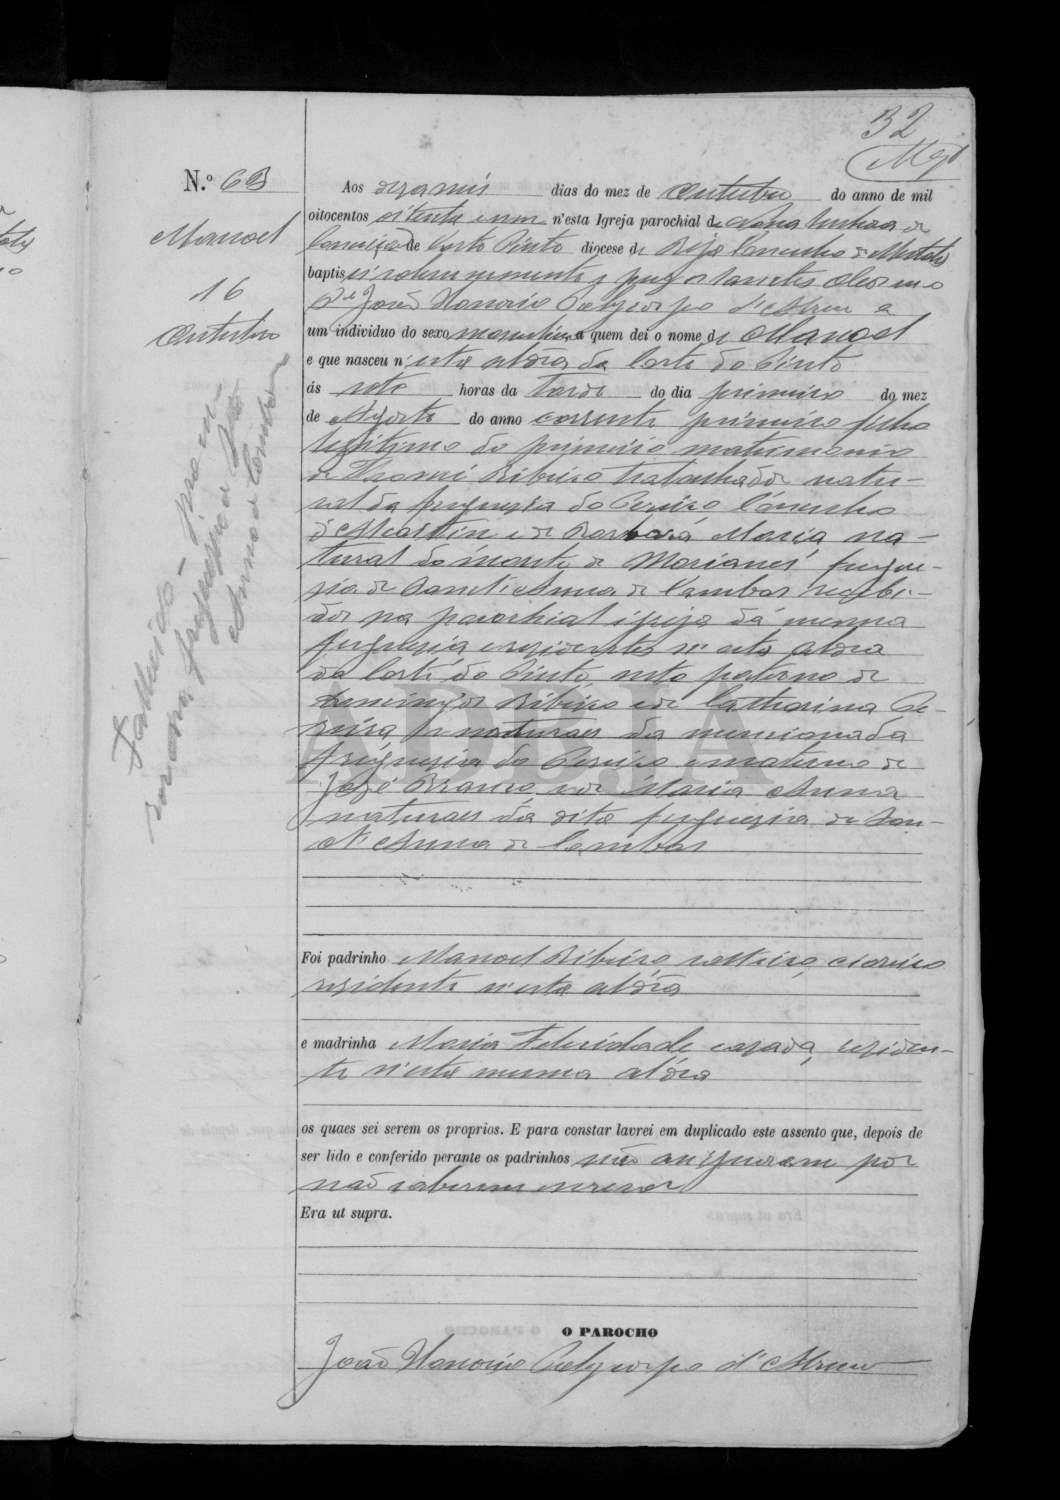 32
N.º 63
Manoel
16
Outubro
Fallecido
freguesia de
Aos dezaseis dias do mez de Outubro do anno de mil
oitocentos oitenta e um n'esta Igreja parochial de Nossa Senhora da
Conceição de Corte Pinto diocese de Beja Concelho de Mertola
baptisei solemnemente e puz os Santos Oleos eu o
João Honorio Polycarpo d'Abreu a
um individuo do sexo masculino a quem dei o nome de Manoel
e que nasceu n'esta aldêa da Corte do Pinto
ás sete horas da tarde do dia primeiro do mez
de Agosto do anno corrente primeiro filho
legitimo do primeiro matrimonio
de Ribeiro trabalhador natu-
ral da freguesia do Pereiro Concelho
d'Alcoutim e de Barbara Maria na-
tural do monte de fregue-
sia de Sant'Anna de Cambas recebi-
dos na parochial igreja da mesma
freguesia e residentes n'esta aldea
da Corte do Pinto neto paterno de
Domingos Ribeiro e de Catharina Pe-
reira naturaes da mencionada
freguesia do Pereiro e materno de
José e de Maria Anna
naturaes da dita freguesia de San-
t'Anna de Cambas
Foi padrinho Manoel Ribeiro solteiro
residente n'esta aldêa
e madrinha Maria Felicidade casada, residen-
te n'esta mesma aldea
os quaes sei serem os proprios. E para constar lavrei em duplicado este assento que, depois de
ser lido e conferido perante os padrinhos não assignaram por
não saberem escrever
Era ut supra.
O PAROCHO
João Honorio Polycarpo d'Abreu
ADBJA